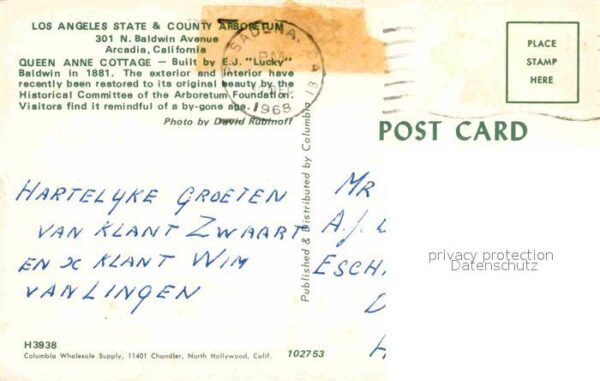 LOS ANGELES STATE & COUNTY ARBORETUM
301 N. Baldwin Avenue
Arcadia, California
QUEEN ANNE COTTAGE – Built by E.J. "Lucky"
Baldwin in 1881. The exterior and interior have
recently been restored to its original beauty by the
Historical Committee of the Arboretum Foundation.
Visitors find it remindful of a by-gone age.
Photo by David Rubinoff
PASADENA,
PM
1968
PLACE
STAMP
HERE
POST CARD
Published & Distributed by Columbia
HARTELYKE GROETEN
VAN KLANT ZWAART
EN X KLANT WIM
VAN LINGEN
MR
A.J.
ESCH
D
privacy protection
Datenschutz
H3938
Columbia Wholesale Supply, 11401 Chandler, North Hollywood, Calif.
102753